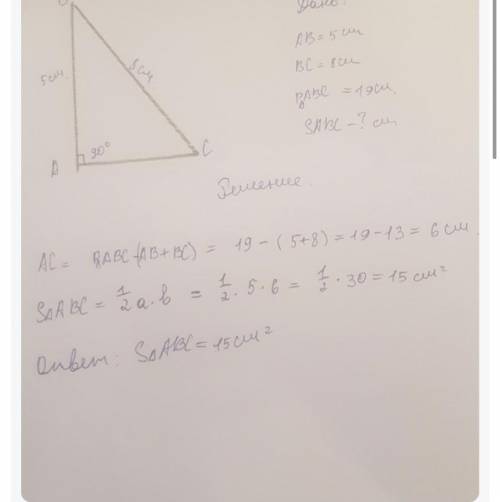 Дано:
AB = 5 см
BC = 8 см
P△ABC = 19 см
SABC - ? см
5 см.
8 см
90°
A
C
Решение.
AC = P△ABC-(AB+BC) = 19 - (5+8) = 19 - 13 = 6 см.
S△ABC = 1/2 a · b = 1/2 · 5 · 6 = 1/2 · 30 = 15 см²
Ответ: S△ABC = 15 см²